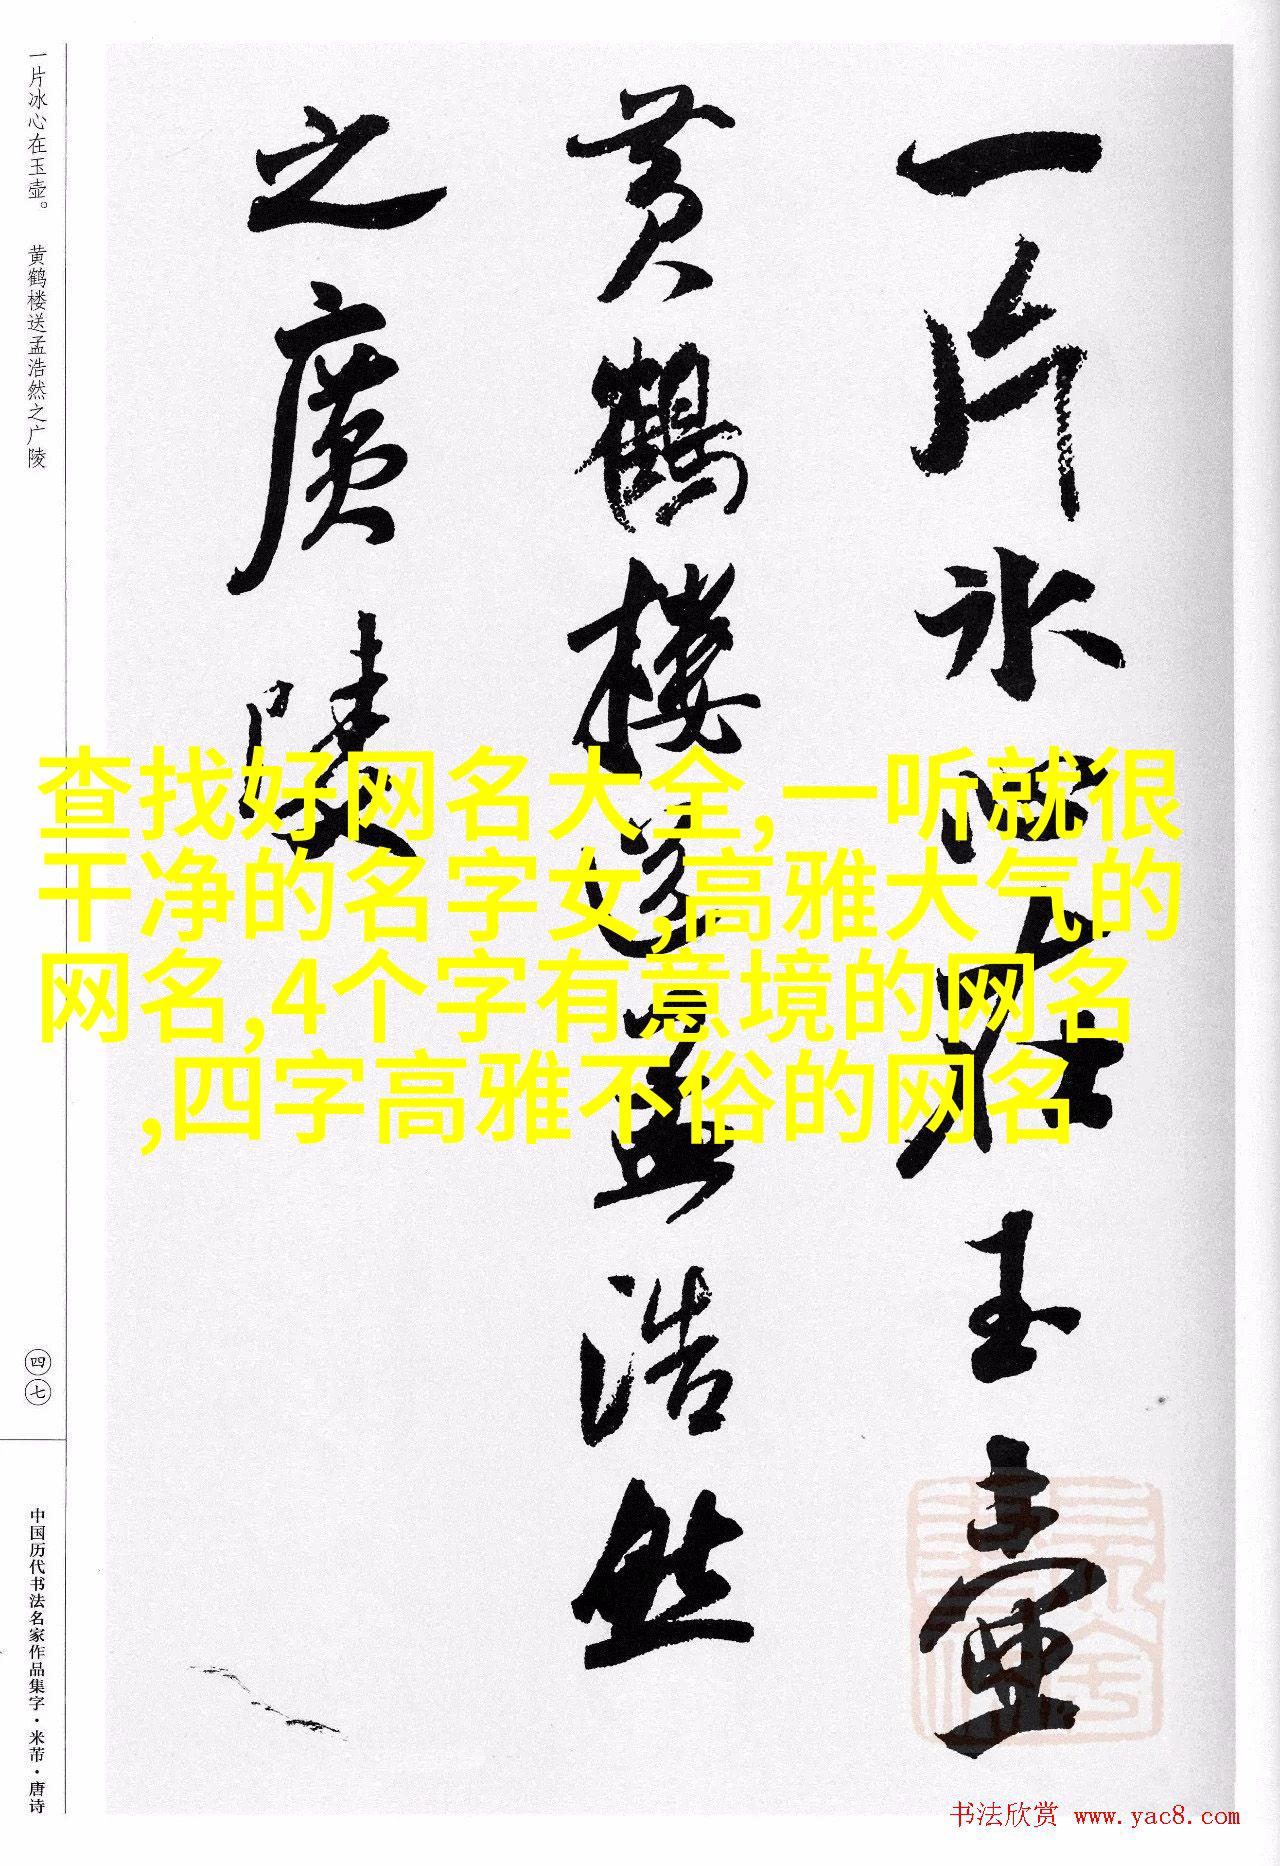 一片冰心在玉壶
黄鹤楼送孟浩然
之廣陵
一片冰心在玉壶。 黄鹤楼送孟浩然之广陵
四七
中国历代书法名家作品集字·米芾·唐诗
查找好网名大全,一听就很
干净的名字女,高雅大气的
网名,4个字有意境的网名
,四字高雅不俗的网名
书法欣赏 www.yac8.com